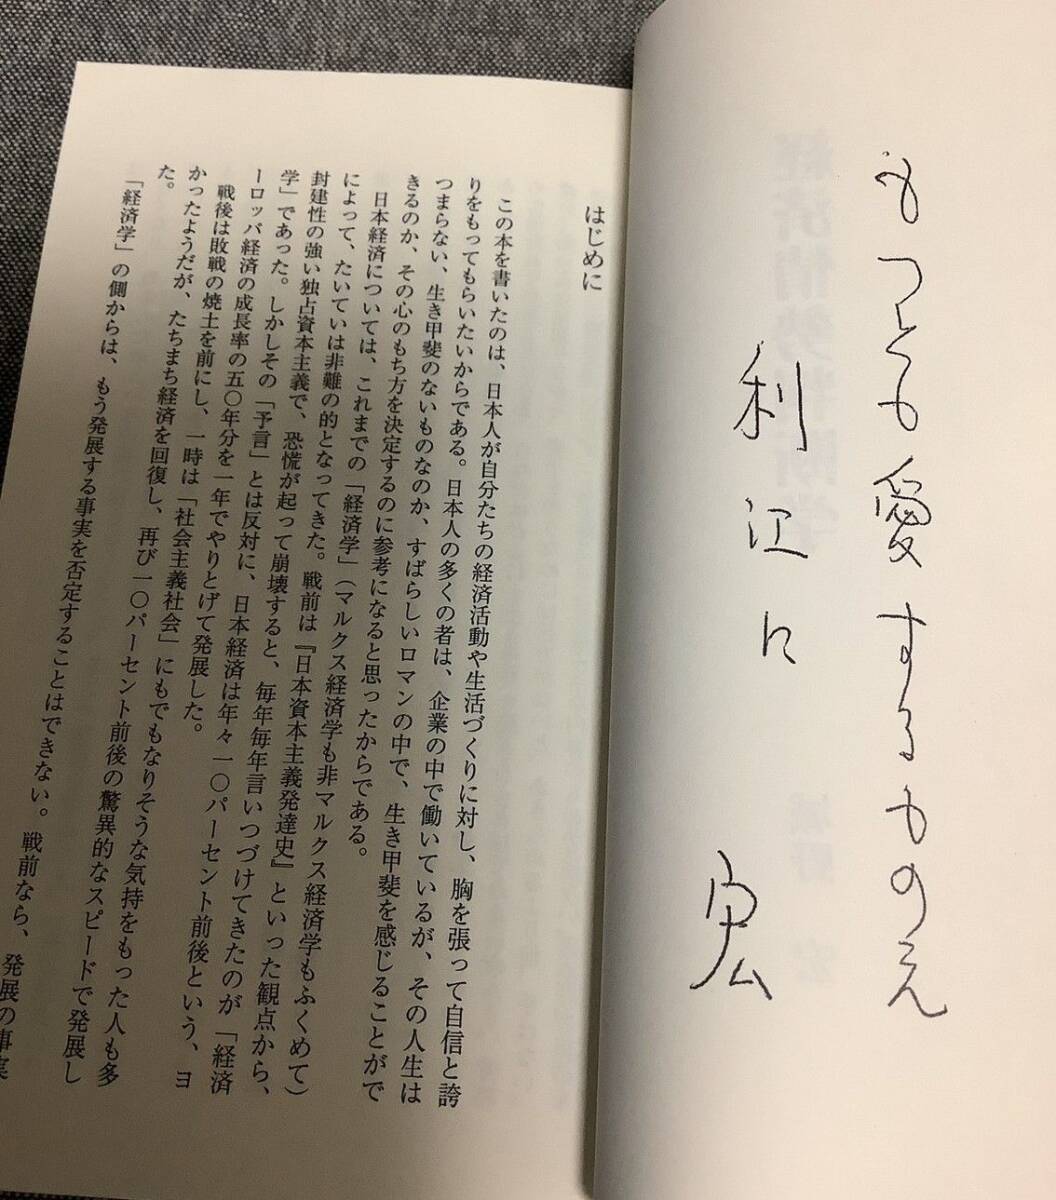 もつとも愛するものえ
利江に
宏
はじめに
この本を書いたのは、日本人が自分たちの経済活動や生活づくりに対し、胸を張って自信と誇
りをもってもらいたいからである。日本人の多くの者は、企業の中で働いているが、その人生は
つまらない、生き甲斐のないものなのか、すばらしいロマンの中で、生き甲斐を感じることがで
きるのか、その心のもち方を決定するのに参考になると思ったからである。
日本経済については、これまでの「経済学」（マルクス経済学も非マルクス経済学もふくめて）
によって、たいていは非難の的となってきた。戦前は『日本資本主義発達史』といった観点から、
封建性の強い独占資本主義で、恐慌が起って崩壊すると、毎年毎年言いつづけてきたのが「経済
学」であった。しかしその「予言」とは反対に、日本経済は年々一〇パーセント前後という、ヨ
ーロッパ経済の成長率の五〇年分を一年でやりとげて発展した。
戦後は敗戦の焼土を前にし、一時は「社会主義社会」にもでもなりそうな気持をもった人も多
かったようだが、たちまち経済を回復し、再び一〇パーセント前後の驚異的なスピードで発展し
た。
「経済学」の側からは、もう発展する事実を否定することはできない。戦前なら、発展の事実